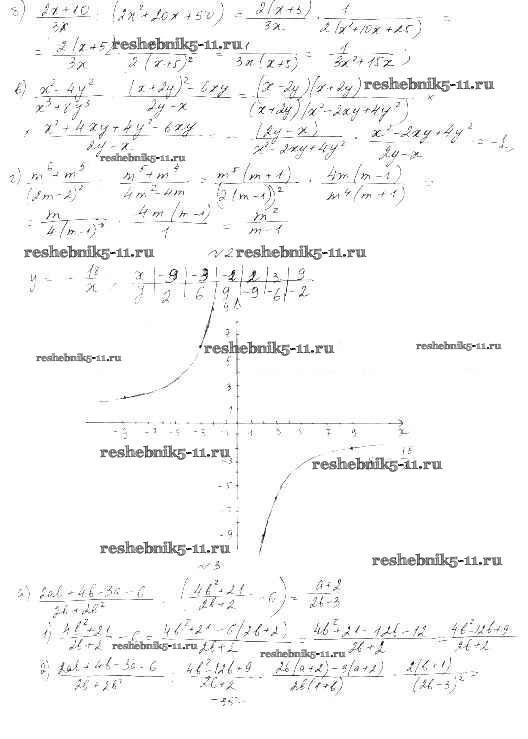 б) (2x+10)/3x : (2x²+20x+50) = 2(x+5)/3x · 1/2(x²+10x+25) =
= 2(x+5)/3x · 1/2(x+5)² = 1/3x(x+5) = 1/(3x²+15x) ;
reshebnik5-11.ru
в) (x²-4y²)/(x³+8y³) · ((x+2y)²-6xy)/(2y-x) = (x-2y)(x+2y)/(x+2y)(x²-2xy+4y²) ×
reshebnik5-11.ru
× (x²+4xy+4y²-6xy)/(2y-x) (2y-x)/(x²-2xy+4y²) · (x²-2xy+4y²)/(2y-x) = -1
reshebnik5-11.ru
г) /(2m-2)² (m⁵+m⁴)/(4m²-4m) = m⁵(m+1)/(2(m-1))² · 4m(m-1)/m⁴(m+1) =
= m/4(m-1)² · 4m(m-1)/1 = m²/(m-1)
reshebnik5-11.ru
№2
reshebnik5-11.ru
y = - 18/x , x | -9 | -3 | -2 | 2 | 3 | 9
y | 2 | 6 | 9 | -9 | -6 | -2
reshebnik5-11.ru
reshebnik5-11.ru
reshebnik5-11.ru
reshebnik5-11.ru
reshebnik5-11.ru
reshebnik5-11.ru
reshebnik5-11.ru
№3
а) (2ab+4b-3a-6)/(2b+2b²) : ((4b²+21)/(2b+2) - 6) = (a+2)/(2b-3)
1) (4b²+21)/(2b+2) - 6 = (4b²+21-6(2b+2))/(2b+2) = (4b²+21-12b-12)/(2b+2) = (4b²-12b+9)/(2b+2)
reshebnik5-11.ru
2) (2ab+4b-3a-6)/(2b+2b²) : (4b²-12b+9)/(2b+2) (2b(a+2)-3(a+2))/2b(1+b) · 2(b+1)/(2b-3)² =
reshebnik5-11.ru
-35-